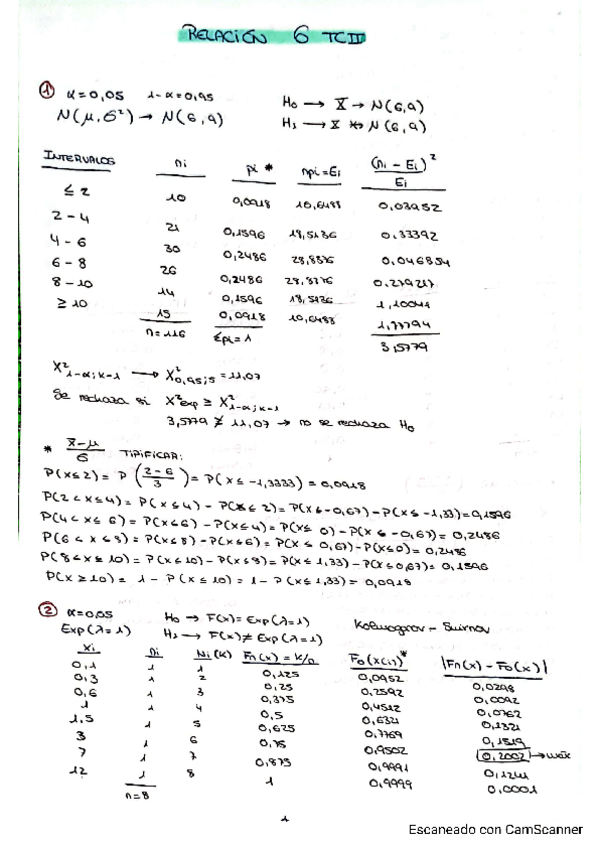 RELACIÓN 6 TCIII
① α=0,05 1-α=0,95 H₀ → X → N(6,9)
N(μ,σ²) → N(6,9) H₁ → X ↛ N(6,9)
INTERVALOS ni pi * npi=Ei (ni - Ei)² / Ei
≤ 2 10 0,0918 10,6488 0,03952
2 - 4 21 0,1596 18,5136 0,33392
4 - 6 30 0,2486 28,8376 0,046854
6 - 8 26 0,2486 28,8376 0,279217
8 - 10 14 0,1596 18,5136 1,10041
≥ 10 15 0,0918 10,6488 1,77794
n=116 Σpi=1 3,5779
X²1-α;k-1 → X²0,95;5 = 11,07
Se rechaza si X²exp ≥ X²1-α;k-1
3,5779 ≱ 11,07 → no se rechaza H₀
* x-μ / σ TIPIFICAR:
P(x≤2) = P(2-6 / 3) = P(x ≤ -1,3333) = 0,0918
P(2<x≤4) = P(x≤4) - P(x≤2) = P(x≤-0,67) - P(x≤-1,33) = 0,1596
P(4<x≤6) = P(x≤6) - P(x≤4) = P(x≤0) - P(x≤-0,67) = 0,2486
P(6<x≤8) = P(x≤8) - P(x≤6) = P(x≤0,67) - P(x≤0) = 0,2486
P(8<x≤10) = P(x≤10) - P(x≤8) = P(x≤1,33) - P(x≤0,67) = 0,1596
P(x≥10) = 1 - P(x≤10) = 1 - P(x≤1,33) = 0,0918
② α=0,05 H₀ → F(x) = Exp(λ=1) Kolmogrov - Smirnov
Exp(λ=1) H₁ → F(x) ≠ Exp(λ=1)
xi ni Ni(k) Fn(x) = k/n F₀(x(i))* |Fn(x) - F₀(x)|
0,1 1 1 0,125 0,0952 0,0298
0,3 1 2 0,25 0,2592 0,0092
0,6 1 3 0,375 0,4512 0,0762
1 1 4 0,5 0,6321 0,1321
1,5 1 5 0,625 0,7769 0,1519
3 1 6 0,75 0,9502 0,2002 → max
7 1 7 0,875 0,9991 0,1241
12 1 8 1 0,9999 0,0001
n=8
1
Escaneado con CamScanner